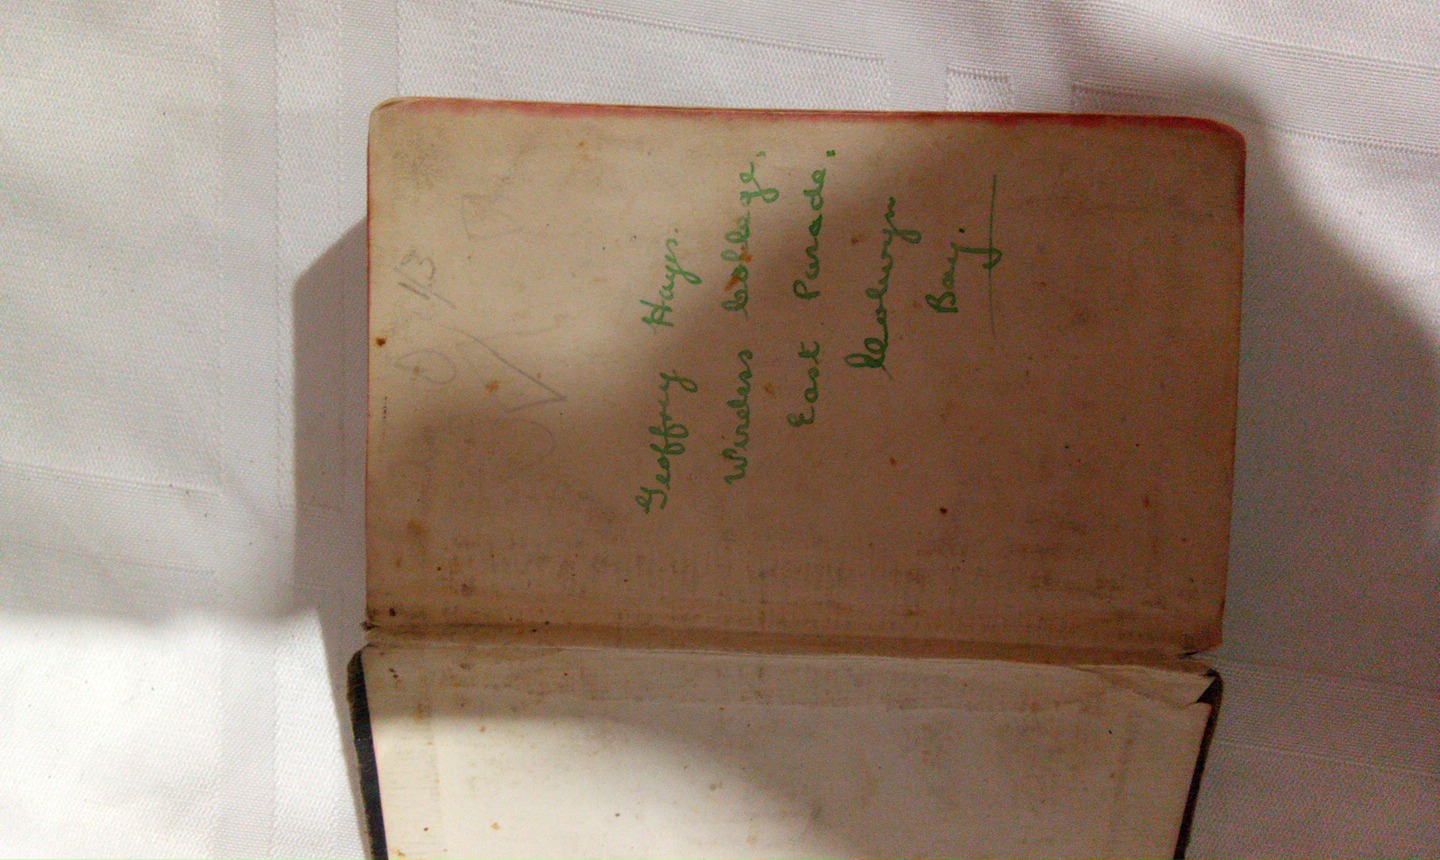 Geoffrey Hays.
Wireless College,
East Parade.
Colwyn
Bay.